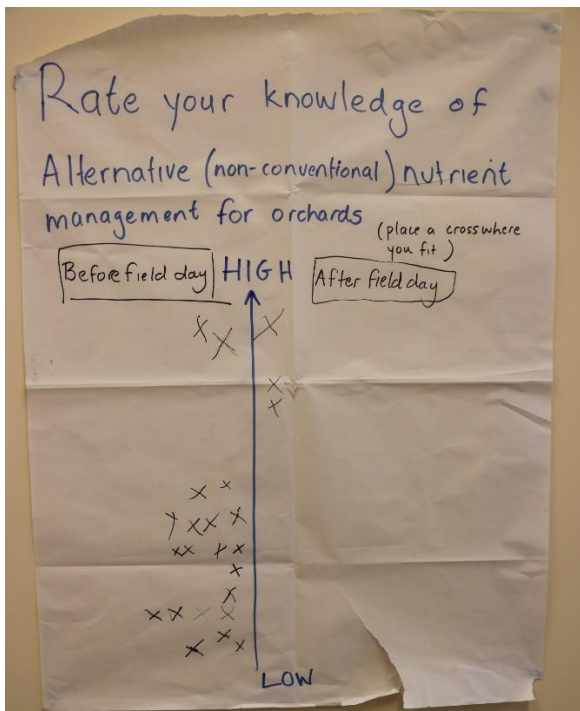 Rate your knowledge of
Alternative (non-conventional) nutrient
management for orchards
(place a cross where
you fit)
Before field day
HIGH
After field day
LOW